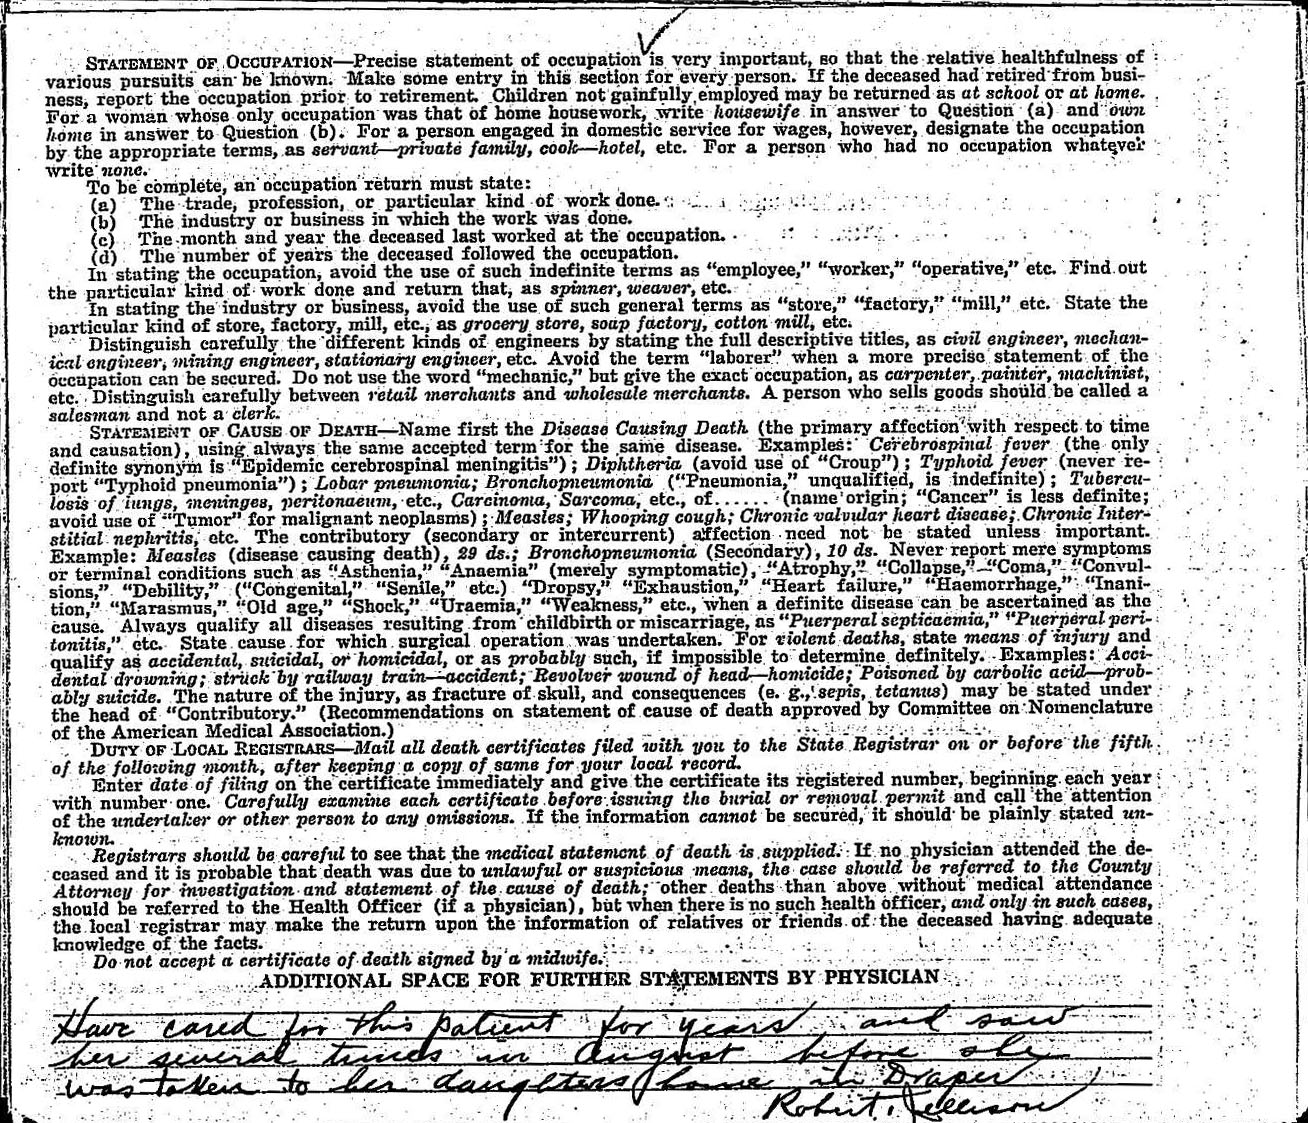 STATEMENT OF OCCUPATION—Precise statement of occupation is very important, so that the relative healthfulness of
various pursuits can be known. Make some entry in this section for every person. If the deceased had retired from busi-
ness, report the occupation prior to retirement. Children not gainfully employed may be returned as at school or at home.
For a woman whose only occupation was that of home housework, write housewife in answer to Question (a) and own
home in answer to Question (b). For a person engaged in domestic service for wages, however, designate the occupation
by the appropriate terms, as servant—private family, cook—hotel, etc. For a person who had no occupation whatever
write none.
To be complete, an occupation return must state:
(a) The trade, profession, or particular kind of work done.
(b) The industry or business in which the work was done.
(c) The month and year the deceased last worked at the occupation.
(d) The number of years the deceased followed the occupation.
In stating the occupation, avoid the use of such indefinite terms as “employee,” “worker,” “operative,” etc. Find out
the particular kind of work done and return that, as spinner, weaver, etc.
In stating the industry or business, avoid the use of such general terms as “store,” “factory,” “mill,” etc. State the
particular kind of store, factory, mill, etc., as grocery store, soap factory, cotton mill, etc.
Distinguish carefully the different kinds of engineers by stating the full descriptive titles, as civil engineer, mechan-
ical engineer, mining engineer, stationary engineer, etc. Avoid the term “laborer” when a more precise statement of the
occupation can be secured. Do not use the word “mechanic,” but give the exact occupation, as carpenter, painter, machinist,
etc. Distinguish carefully between retail merchants and wholesale merchants. A person who sells goods should be called a
salesman and not a clerk.
STATEMENT OF CAUSE OF DEATH—Name first the Disease Causing Death (the primary affection with respect to time
and causation), using always the same accepted term for the same disease. Examples: Cerebrospinal fever (the only
definite synonym is “Epidemic cerebrospinal meningitis”); Diphtheria (avoid use of “Croup”); Typhoid fever (never re-
port “Typhoid pneumonia”); Lobar pneumonia; Bronchopneumonia (“Pneumonia,” unqualified, is indefinite); Tubercu-
losis of lungs, meninges, peritonaeum, etc., Carcinoma, Sarcoma, etc., of...... (name origin; “Cancer” is less definite;
avoid use of “Tumor” for malignant neoplasms); Measles; Whooping cough; Chronic valvular heart disease; Chronic Inter-
stitial nephritis, etc. The contributory (secondary or intercurrent) affection need not be stated unless important.
Example: Measles (disease causing death), 29 ds.; Bronchopneumonia (Secondary), 10 ds. Never report mere symptoms
or terminal conditions such as “Asthenia,” “Anaemia” (merely symptomatic), “Atrophy,” “Collapse,” “Coma,” “Convul-
sions,” “Debility,” (“Congenital,” “Senile,” etc.) “Dropsy,” “Exhaustion,” “Heart failure,” “Haemorrhage,” “Inani-
tion,” “Marasmus,” “Old age,” “Shock,” “Uraemia,” “Weakness,” etc., when a definite disease can be ascertained as the
cause. Always qualify all diseases resulting from childbirth or miscarriage, as “Puerperal septicaemia,” “Puerperal peri-
tonitis,” etc. State cause for which surgical operation was undertaken. For violent deaths, state means of injury and
qualify as accidental, suicidal, or homicidal, or as probably such, if impossible to determine definitely. Examples: Acci-
dental drowning; struck by railway train—accident; Revolver wound of head—homicide; Poisoned by carbolic acid—prob-
ably suicide. The nature of the injury, as fracture of skull, and consequences (e. g., sepis, tetanus) may be stated under
the head of “Contributory.” (Recommendations on statement of cause of death approved by Committee on Nomenclature
of the American Medical Association.)
DUTY OF LOCAL REGISTRARS—Mail all death certificates filed with you to the State Registrar on or before the fifth
of the following month, after keeping a copy of same for your local record.
Enter date of filing on the certificate immediately and give the certificate its registered number, beginning each year
with number one. Carefully examine each certificate before issuing the burial or removal permit and call the attention
of the undertaker or other person to any omissions. If the information cannot be secured, it should be plainly stated un-
known.
Registrars should be careful to see that the medical statement of death is supplied. If no physician attended the de-
ceased and it is probable that death was due to unlawful or suspicious means, the case should be referred to the County
Attorney for investigation and statement of the cause of death; other deaths than above without medical attendance
should be referred to the Health Officer (if a physician), but when there is no such health officer, and only in such cases,
the local registrar may make the return upon the information of relatives or friends of the deceased having adequate
knowledge of the facts.
Do not accept a certificate of death signed by a midwife.
ADDITIONAL SPACE FOR FURTHER STATEMENTS BY PHYSICIAN
Have cared for this patient for years and saw
her several times in August before she
was taken to her daughters home in Draper
Robert. Jellison